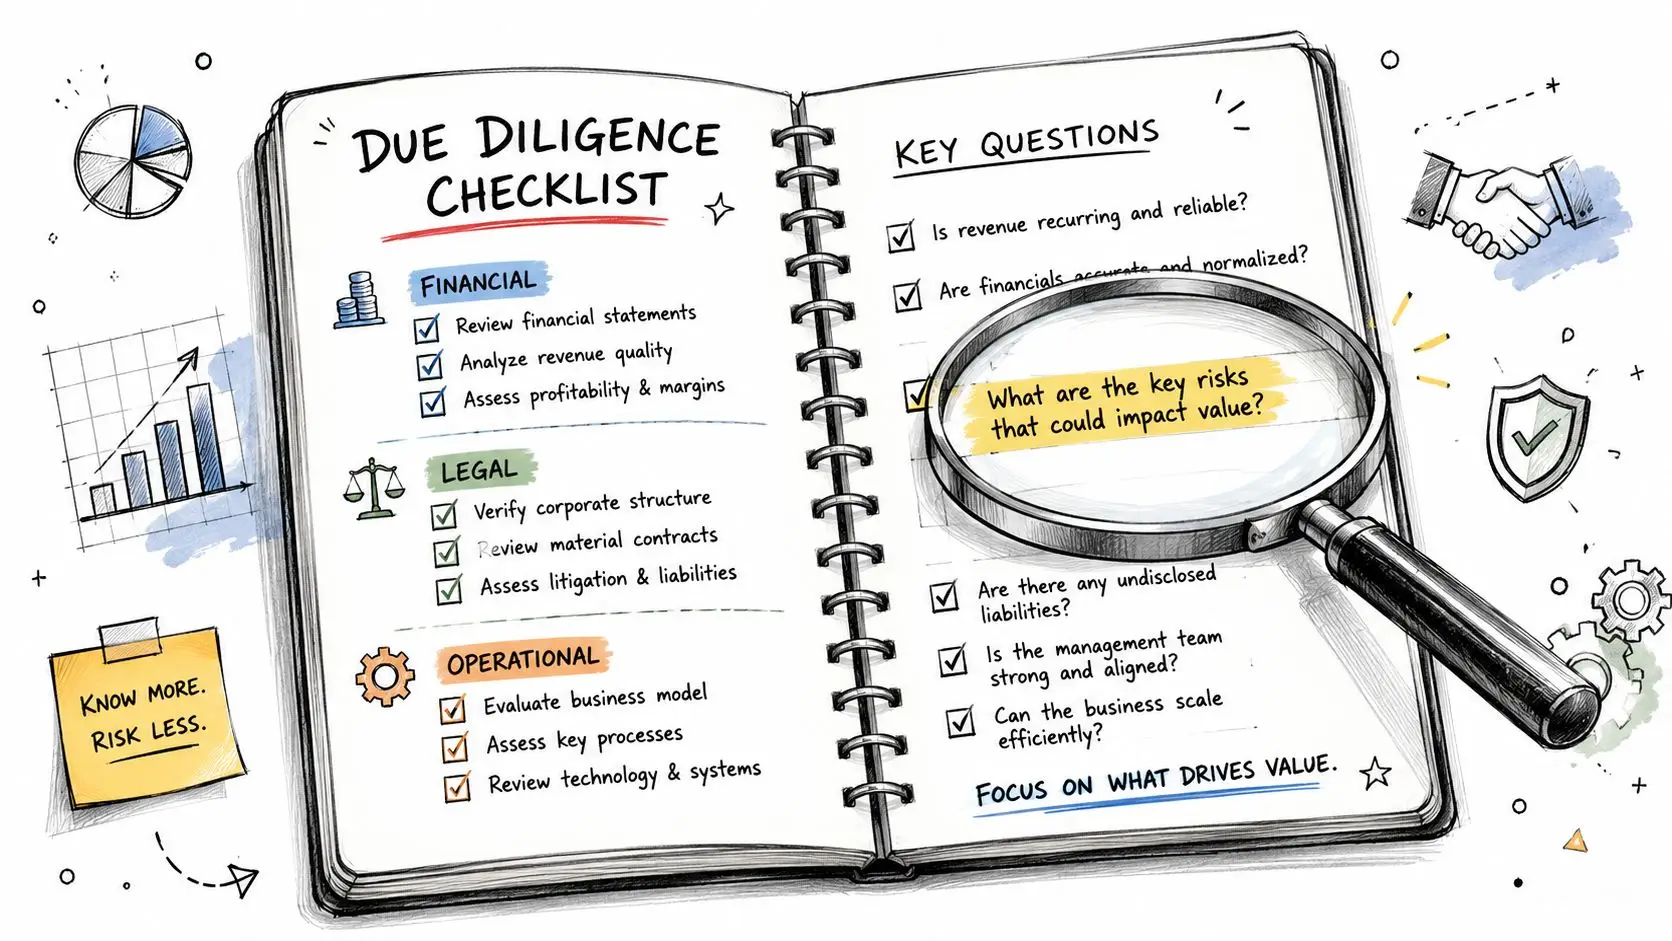 DUE DILIGENCE
CHECKLIST
FINANCIAL
Review financial statements
Analyze revenue quality
Assess profitability & margins
LEGAL
Verify corporate structure
Review material contracts
Assess litigation & liabilities
OPERATIONAL
Evaluate business model
Assess key processes
Review technology & systems
KEY QUESTIONS
Is revenue recurring and reliable?
Are financials accurate and normalized?
What are the key risks
that could impact value?
Are there any undisclosed
liabilities?
Is the management team
strong and aligned?
Can the business scale
efficiently?
FOCUS ON WHAT DRIVES VALUE.
KNOW MORE.
RISK LESS.